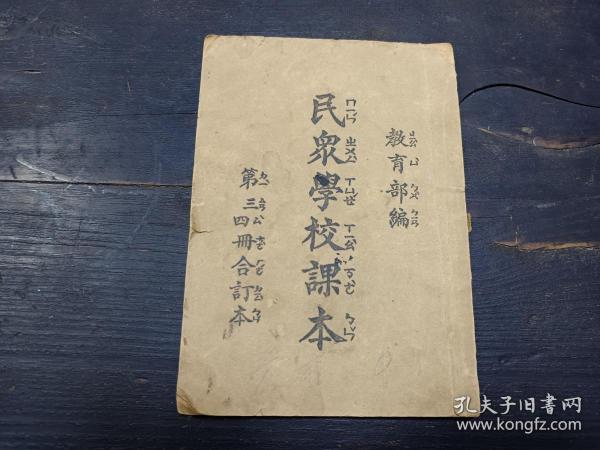 教育部編
民眾學校課本
第三四冊合訂本
孔夫子旧书网
www.kongfz.com